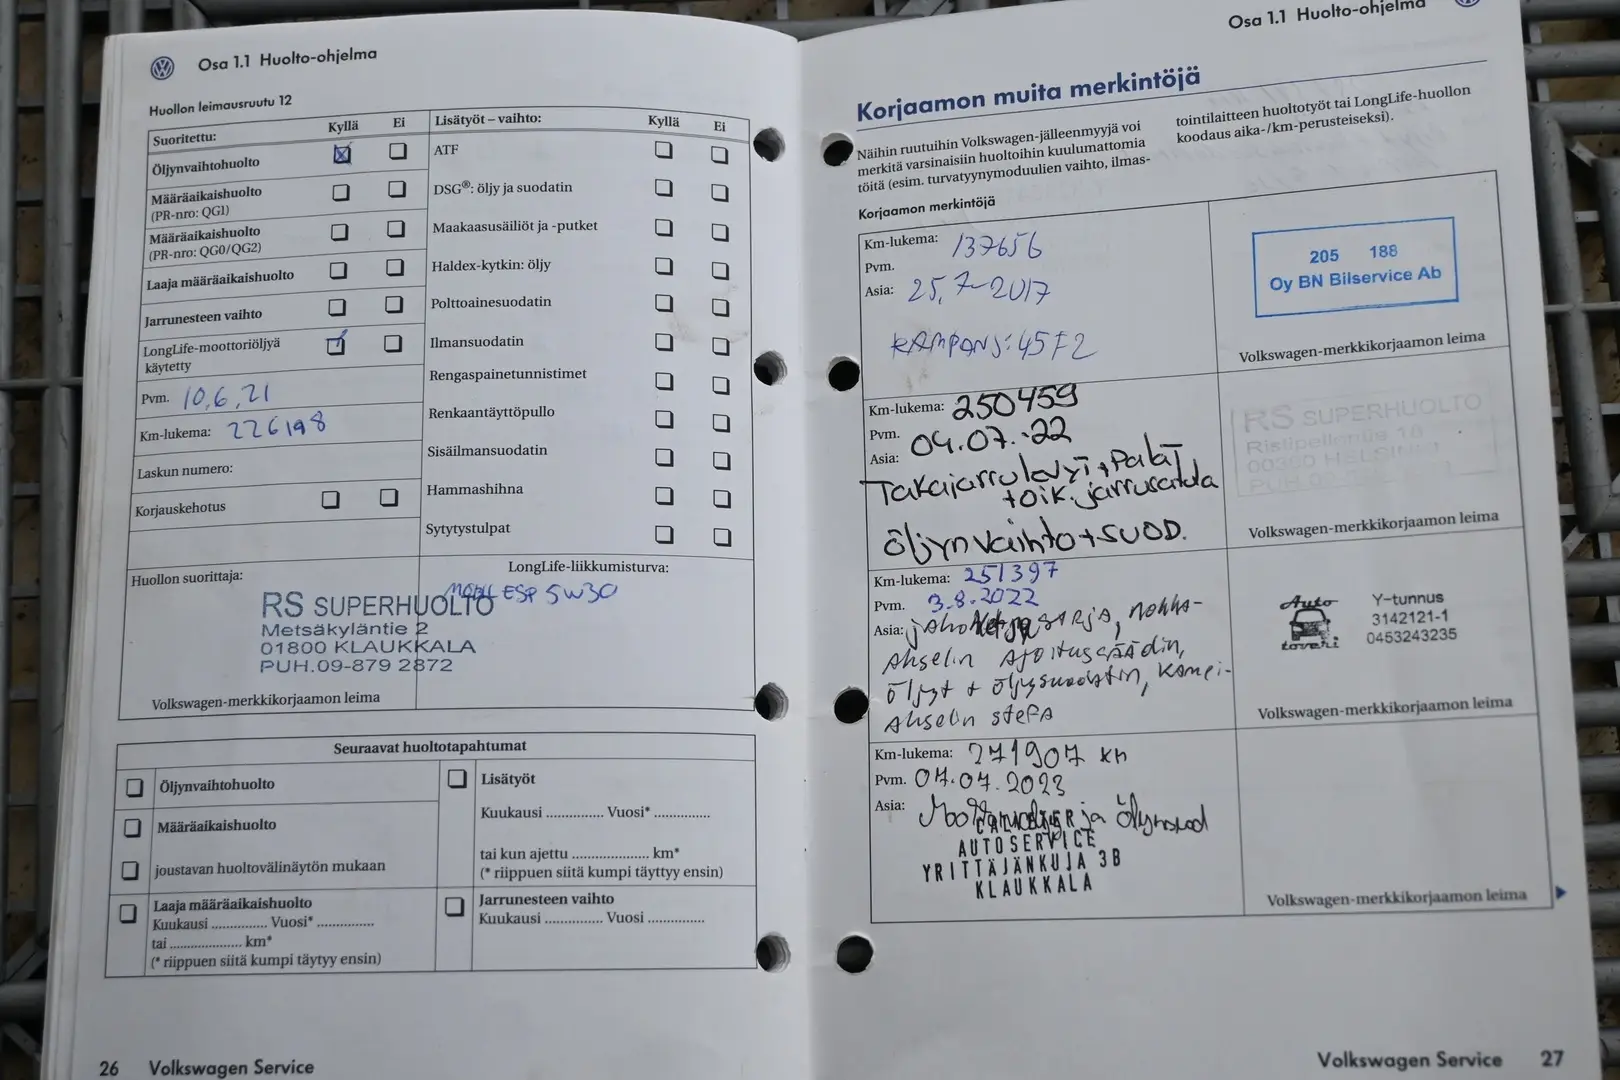 Osa 1.1 Huolto-ohjelma
Huollon leimausruutu 12
Suoritettu: Kyllä Ei
Öljynvaihtohuolto
Määräaikaishuolto
(PR-nro: QG1)
Määräaikaishuolto
(PR-nro: QG0/QG2)
Laaja määräaikaishuolto
Jarrunesteen vaihto
LongLife-moottoriöljyä
käytetty
Pvm. 10.6.21
Km-lukema: 226198
Laskun numero:
Korjauskehotus
Lisätyöt – vaihto: Kyllä Ei
ATF
DSG®: öljy ja suodatin
Maakaasusäiliöt ja -putket
Haldex-kytkin: öljy
Polttoainesuodatin
Ilmansuodatin
Rengaspainetunnistimet
Renkaantäyttöpullo
Sisäilmansuodatin
Hammashihna
Sytytystulpat
Huollon suorittaja:
RS SUPERHUOLTO
Metsäkyläntie 2
01800 KLAUKKALA
PUH.09-879 2872
Volkswagen-merkkikorjaamon leima
LongLife-liikkumisturva:
MOBIL ESP 5W30
Seuraavat huoltotapahtumat
Öljynvaihtohuolto
Määräaikaishuolto
joustavan huoltovälinäytön mukaan
Laaja määräaikaishuolto
Kuukausi .............. Vuosi* ..............
tai .................. km*
(* riippuen siitä kumpi täytyy ensin)
Lisätyöt
Kuukausi .............. Vuosi* ..............
tai kun ajettu .................... km*
(* riippuen siitä kumpi täyttyy ensin)
Jarrunesteen vaihto
Kuukausi .............. Vuosi ..............
26 Volkswagen Service
Osa 1.1 Huolto-ohjelma
Korjaamon muita merkintöjä
Näihin ruutuihin Volkswagen-jälleenmyyjä voi
merkitä varsinaisiin huoltoihin kuulumattomia
töitä (esim. turvatyynymoduulien vaihto, ilmas-
tointilaitteen huoltotyöt tai LongLife-huollon
koodaus aika-/km-perusteiseksi).
Korjaamon merkintöjä
Km-lukema: 137656
Pvm.
Asia: 25.7-2017
KAMPANJ: 45F2
205 188
Oy BN Bilservice Ab
Volkswagen-merkkikorjaamon leima
Km-lukema: 250459
Pvm. 04.07.-22
Asia:
Takajarrulevyt+Palat
+oik. jarrusatula
öljynvaihto+suod.
RS SUPERHUOLTO
Volkswagen-merkkikorjaamon leima
Km-lukema: 251397
Pvm. 3.8.2022
Asia: sarja, nokka-
akselin ajoitussäädin,
öljyt + öljysuodatin, kampi-
akselin stefa
Auto
toveri
Y-tunnus
3142121-1
0453243235
Volkswagen-merkkikorjaamon leima
Km-lukema: 271907 km
Pvm. 07.07.2023
Asia: ja öljynsuod
AUTOSERVICE
YRITTÄJÄNKUJA 3B
KLAUKKALA
Volkswagen-merkkikorjaamon leima
Volkswagen Service 27